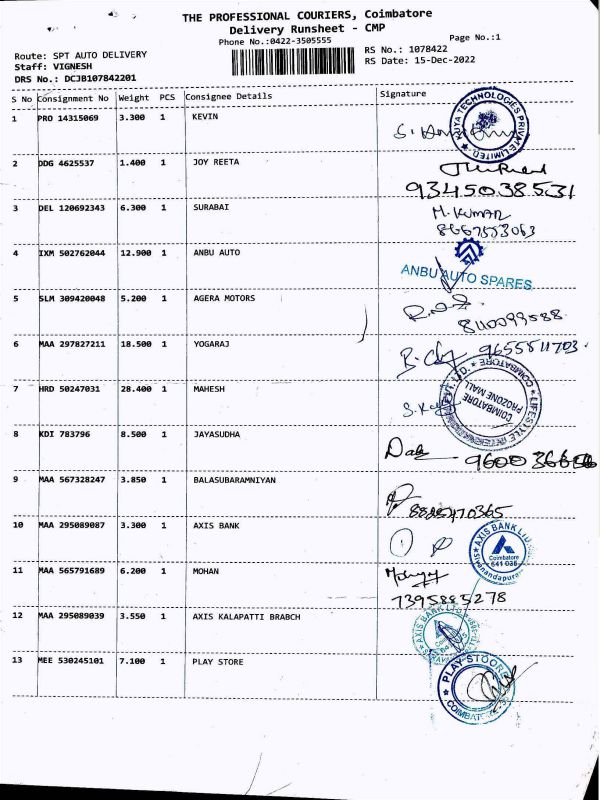 THE PROFESSIONAL COURIERS, Coimbatore
Delivery Runsheet - CMP
Phone No.:0422-3505555
Page No.:1
Route: SPT AUTO DELIVERY
RS No.: 1078422
Staff: VIGNESH
RS Date: 15-Dec-2022
DRS No.: DCJB107842201
S No Consignment No Weight PCS Consignee Details Signature
1 PRO 14315069 3.300 1 KEVIN
2 DDG 4625537 1.400 1 JOY REETA
9345038531
3 DEL 120692343 6.300 1 SURABAI
M. KUMAR
8667553063
4 IXM 502762044 12.900 1 ANBU AUTO
ANBU AUTO SPARES
5 SLM 309420048 5.200 1 AGERA MOTORS
6 MAA 297827211 18.500 1 YOGARAJ
9655511703
7 HRD 50247031 28.400 1 MAHESH
COIMBATORE
PROZONE MALL
8 KDI 783796 8.500 1 JAYASUDHA
9 MAA 567328247 3.850 1 BALASUBARAMNIYAN
10 MAA 295089087 3.300 1 AXIS BANK
AXIS BANK LTD
Coimbatore
641 035
11 MAA 565791689 6.200 1 MOHAN
7395885278
12 MAA 295089039 3.550 1 AXIS KALAPATTI BRABCH
AXIS BANK LTD
13 MEE 530245101 7.100 1 PLAY STORE
PLAY STOORE